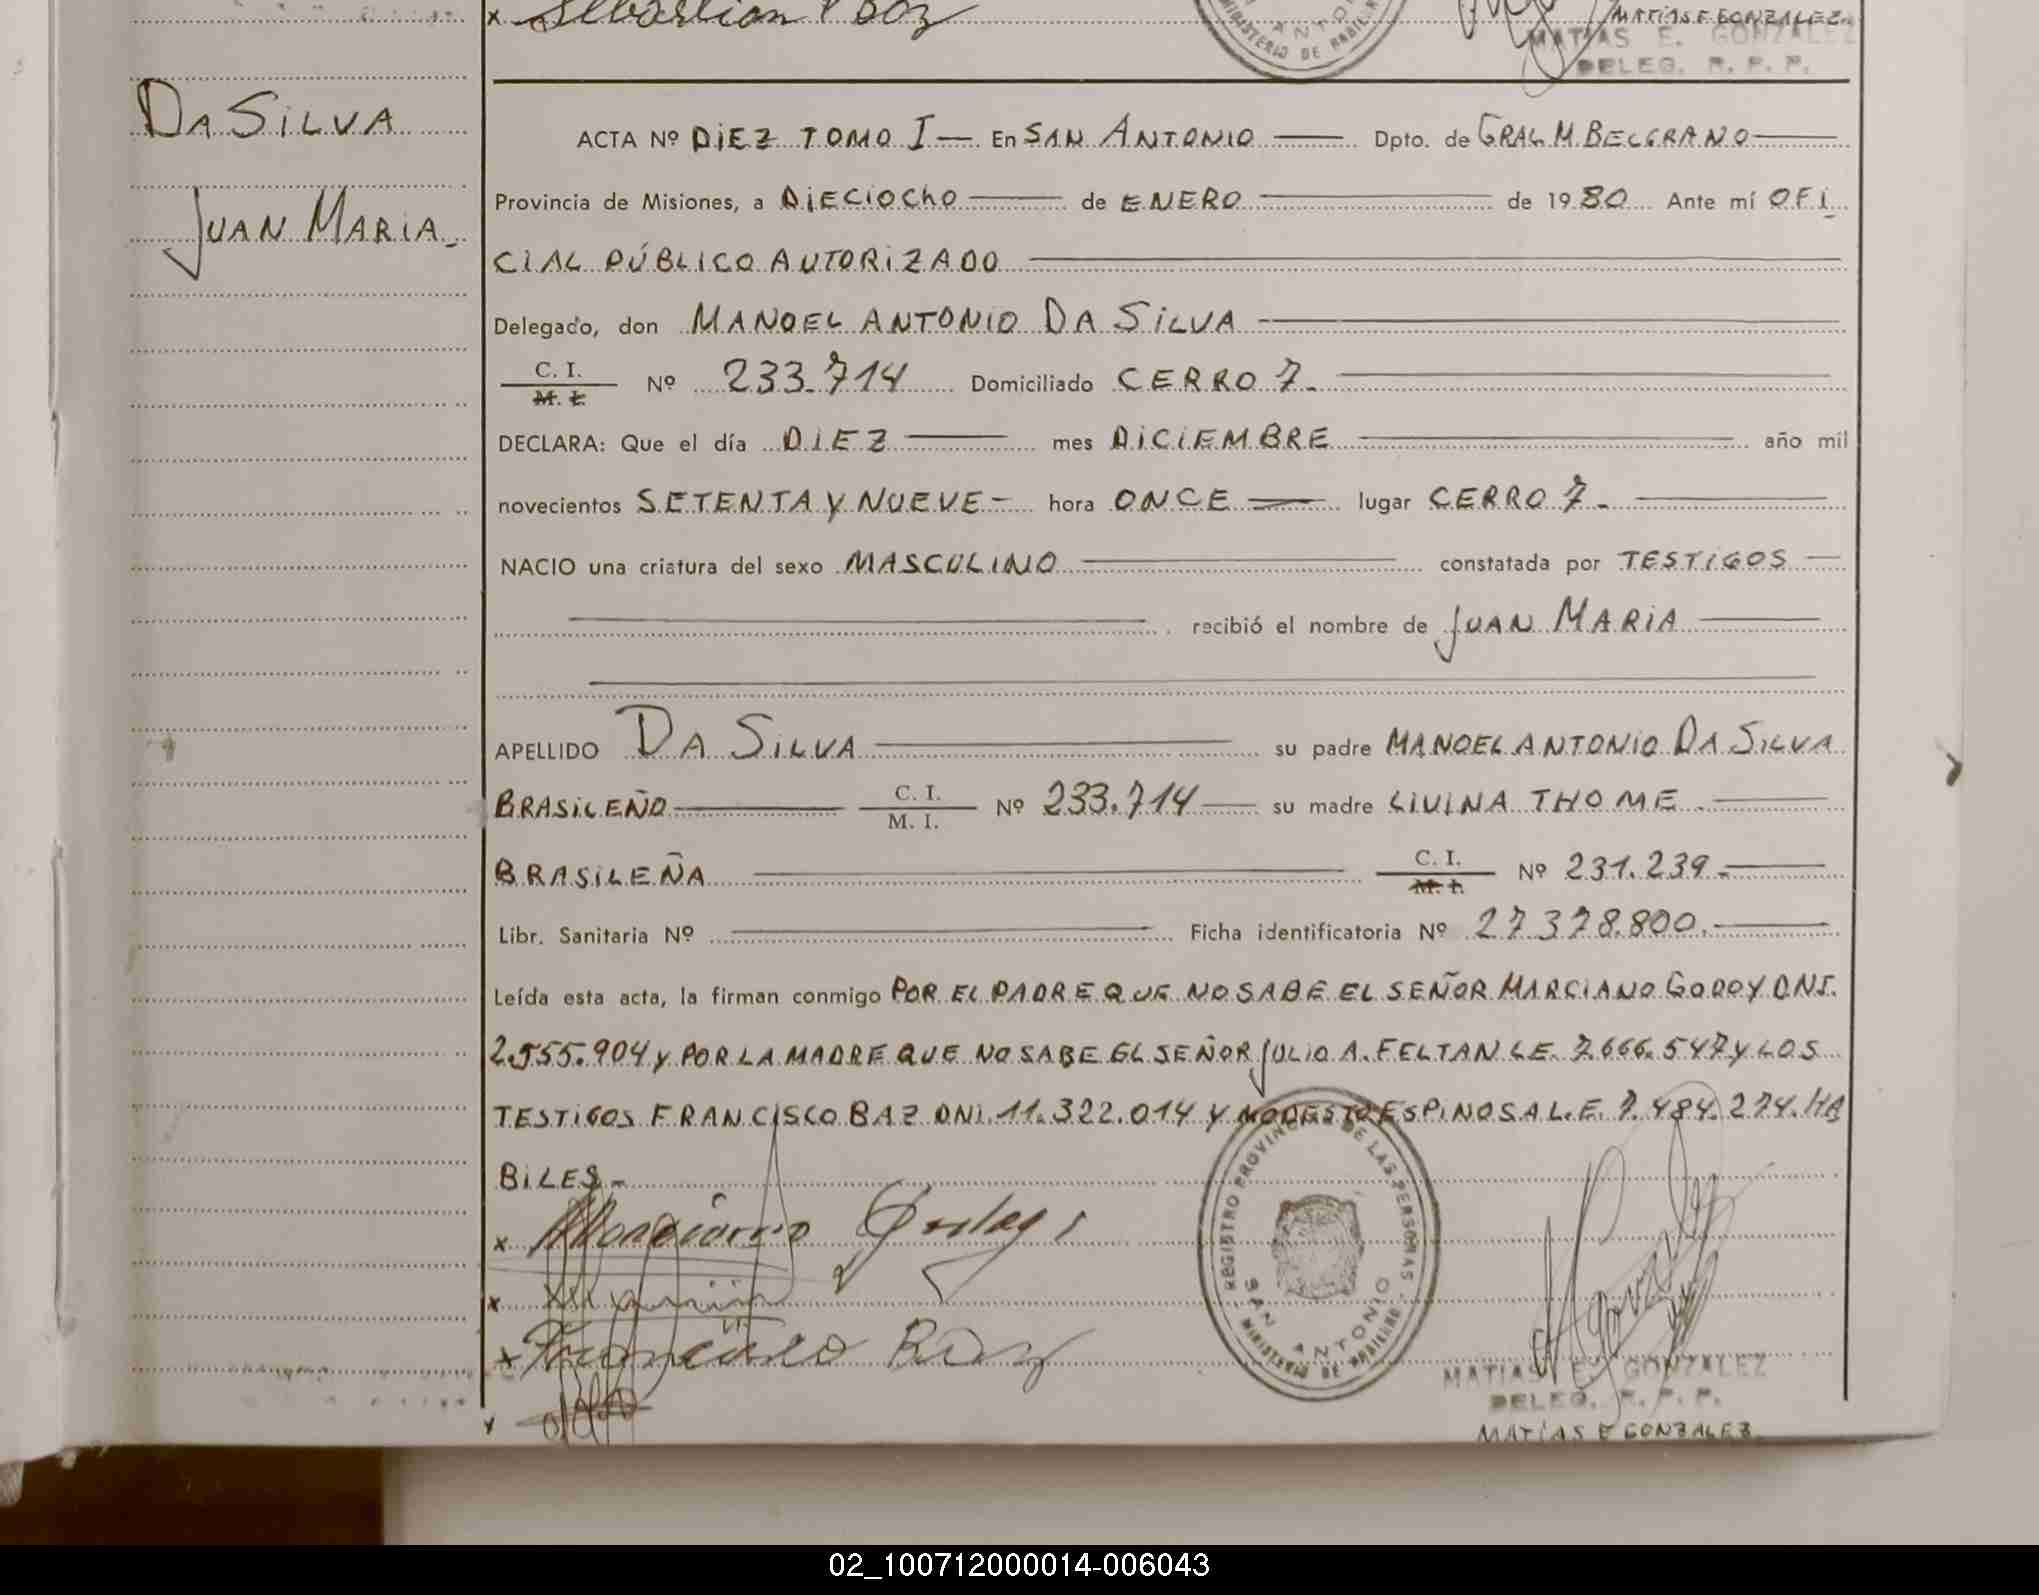 Sebastian
MATÍAS E GONZALEZ.
MATIAS E. GONZALEZ
DELEG. R. P. P.
SAN ANTONIO
MINISTERIO DE
DA SILVA
JUAN MARIA
ACTA Nº DIEZ TOMO I — En SAN ANTONIO — Dpto. de GRAL M. BELGRANO —
Provincia de Misiones, a DIECIOCHO — de ENERO — de 1980 Ante mí OFI
CIAL PÚBLICO AUTORIZADO —
Delegado, don MANOEL ANTONIO DA SILVA —
C. I.
M. I. Nº 233.714 Domiciliado CERRO 7. —
DECLARA: Que el día DIEZ — mes DICIEMBRE — año mil
novecientos SETENTA Y NUEVE — hora ONCE — lugar CERRO 7. —
NACIO una criatura del sexo MASCULINO — constatada por TESTIGOS —
— recibió el nombre de JUAN MARIA —
APELLIDO DA SILVA — su padre MANOEL ANTONIO DA SILVA
BRASILEÑO — C. I.
M. I. Nº 233.714 — su madre LIVINA THOME. —
BRASILEÑA — C. I.
M. I. Nº 231.239. —
Libr. Sanitaria Nº — Ficha identificatoria Nº 27.378.800. —
Leída esta acta, la firman conmigo POR EL PADRE QUE NO SABE EL SEÑOR MARCIANO GODOY DNI.
2.555.904 y POR LA MADRE QUE NO SABE EL SEÑOR JULIO A. FELTAN L.E. 7.666.547 y LOS
TESTIGOS FRANCISCO BAZ DNI. 11.322.014 Y MODESTO ESPINOSA L.E. 7.484.274. HA
BILES —
x Marciano
x
x Francisco Baz
REGISTRO PROVINCIAL DE LAS PERSONAS
SAN ANTONIO
MINISTERIO DE
MATIAS E. GONZALEZ
DELEG. R. P. P.
MATÍAS E GONZALEZ
02_100712000014-006043